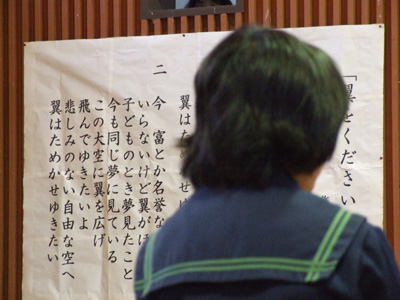 「翼をください
翼はた
せゆ
二
今 富とか名誉な
いらないけど翼がほ
子どものとき夢見たこと
今も同じ夢に見ている
この大空に翼を広げ
飛んでゆきたいよ
悲しみのない自由な空へ
翼はためかせゆきたい